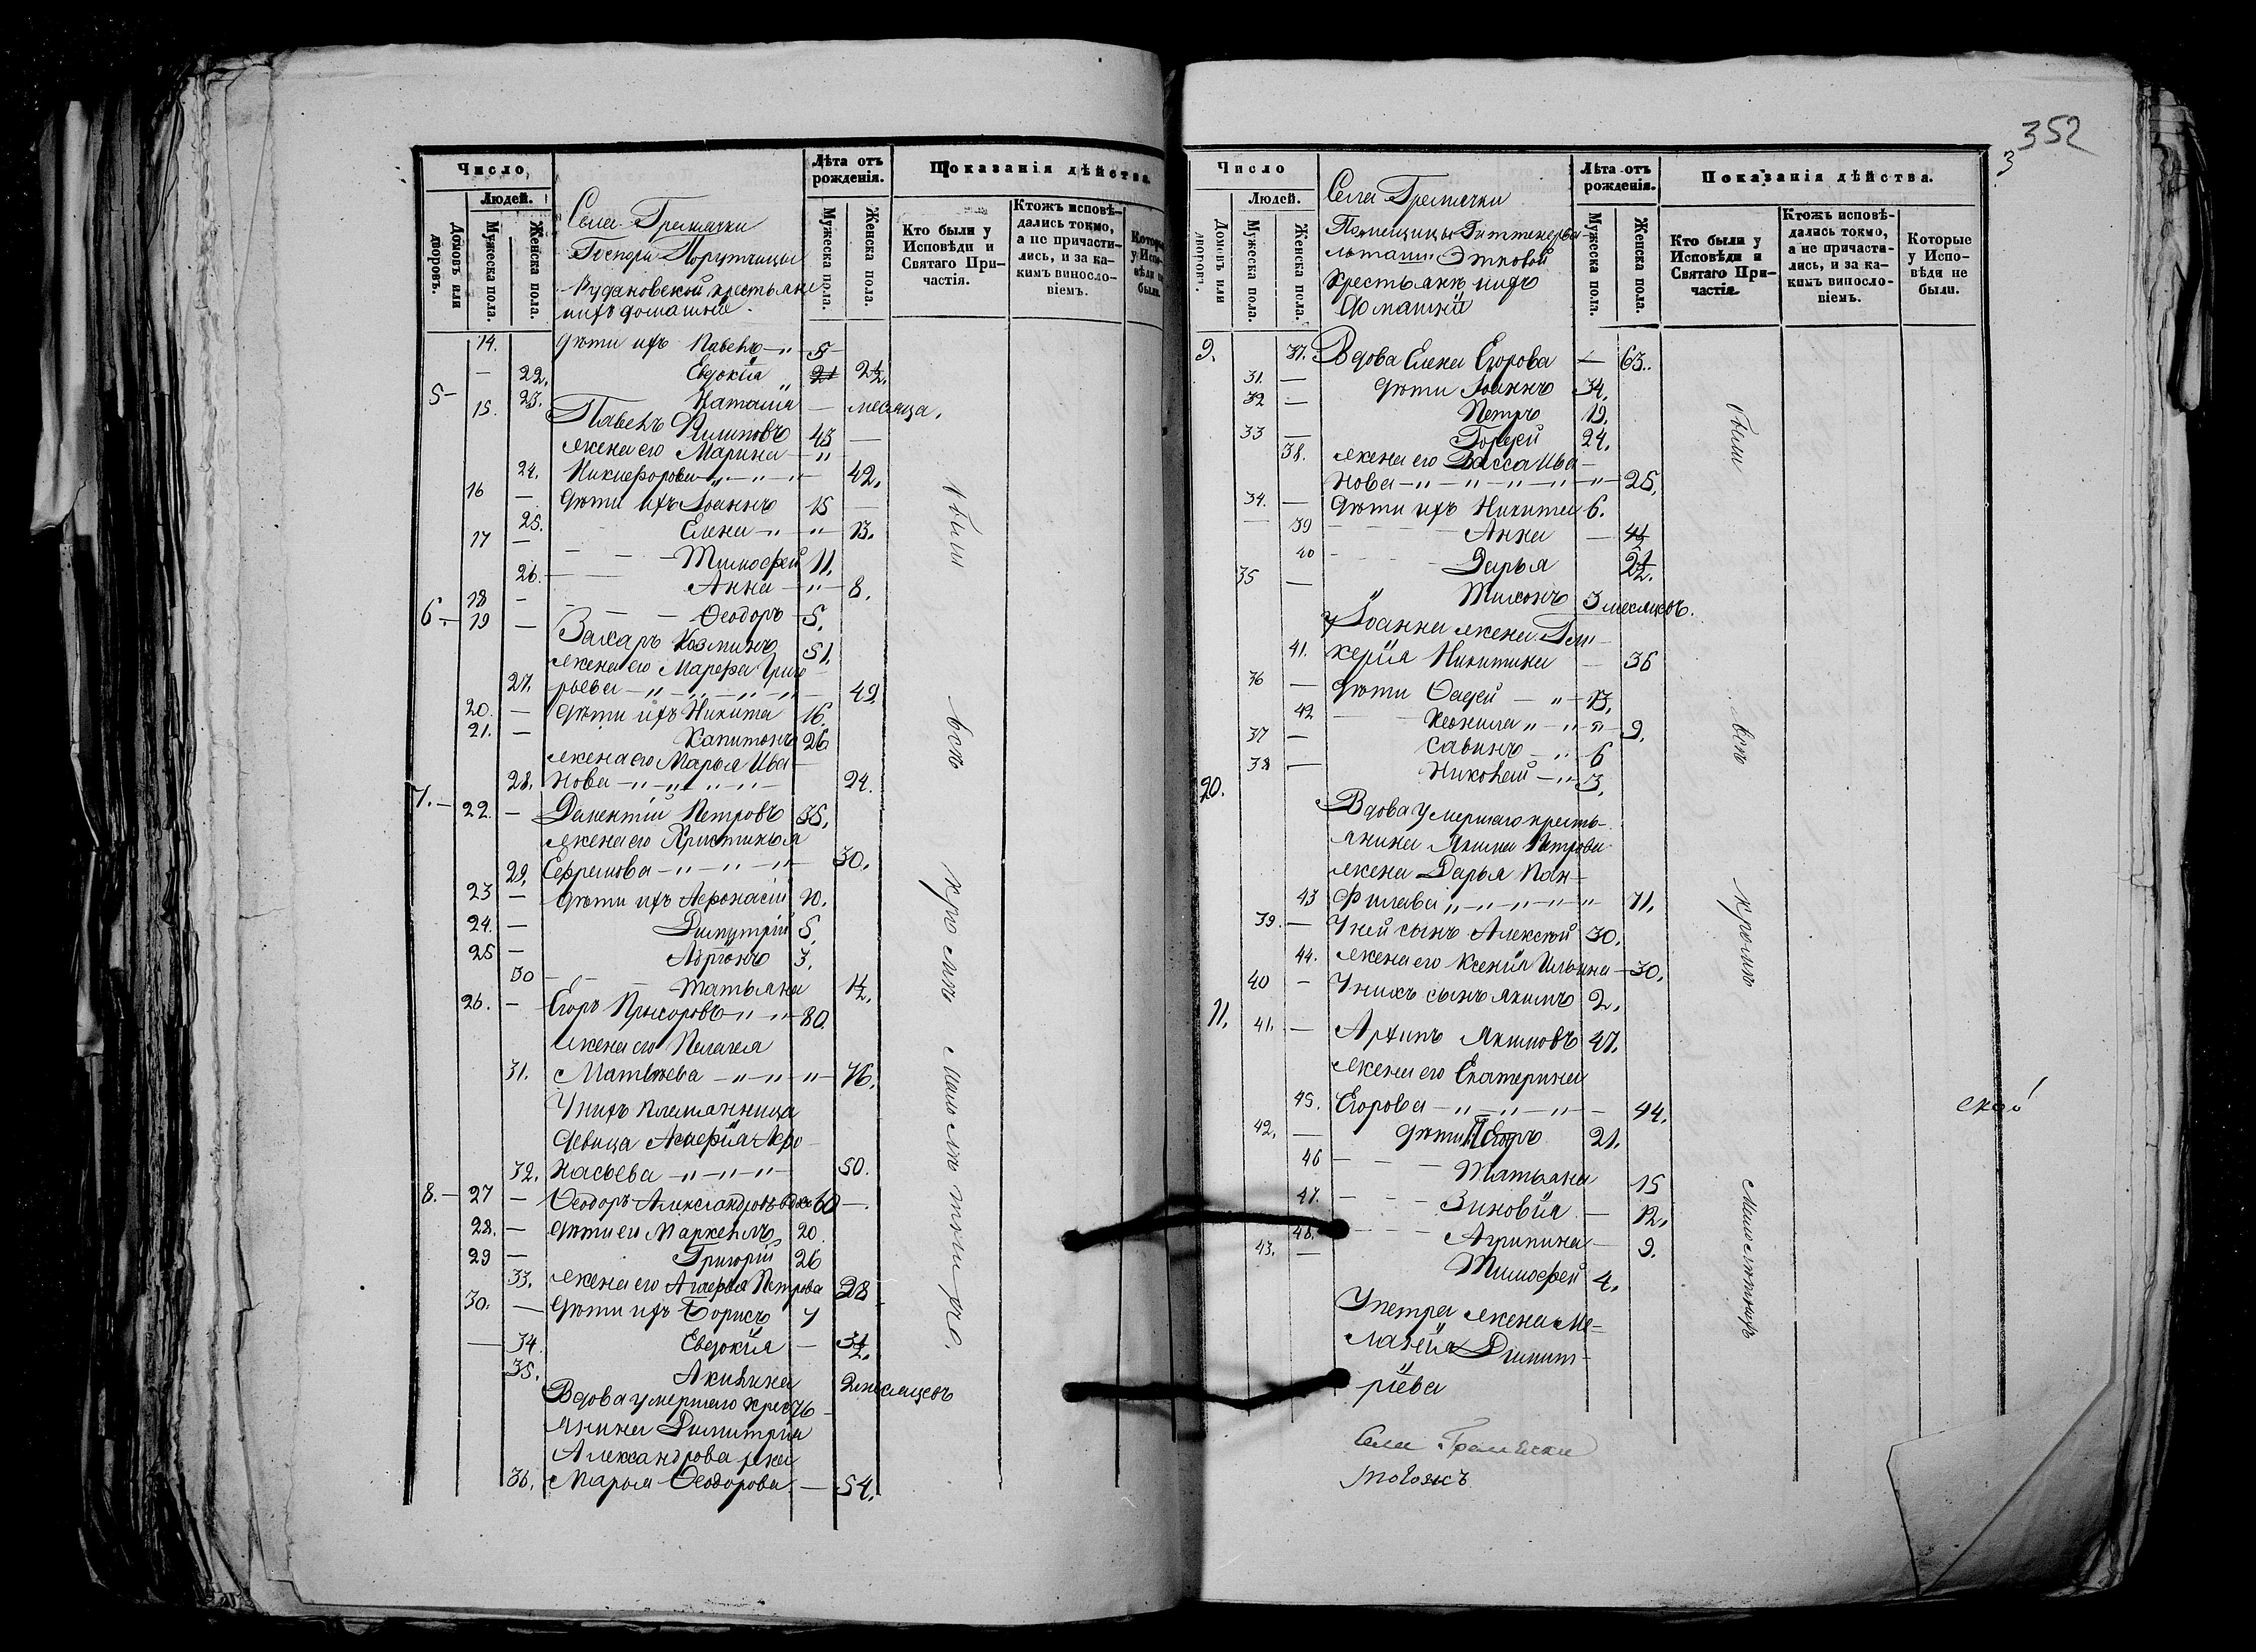 Число
Людей.
Домовъ или дворовъ.
Мужеска пола.
Женска пола.
Села Гремячки
Рудановской крестьяне
ихъ домашніе.
Лѣта отъ рожденія.
Мужеска пола.
Женска пола.
Показанія дѣйства.
Кто были у Исповѣди и Святаго Причастія.
Ктожъ исповѣдались токмо, а не причастились, и за какимъ винословіемъ.
14. Дѣти ихъ Павелъ — " — 5
— 22. Евдокія 2 1/2.
5 — 23. Наталія — месяца.
15. Павелъ Филиповъ 43 —
жена его Марина — "
24. Никифорова — " — " — " 42.
16 — Дѣти ихъ Іоаннъ 15 —
25. Елена — " — " — 13.
17 — Тимофей 11.
26. Анна — " — 8.
18 — Ѳеодоръ 5.
6. — 19 — Захаръ Козминъ 51.
жена его Марѳа Григо-
27. рьева — " — " — " — " — 49
20. — Дѣти ихъ Никита 16.
21. — Капитонъ 26
жена его Марья Ива-
28. нова — " — " — " — 24.
7. — 22. — Дементій Петровъ 35.
жена его Христинья
29. Ефремова — " — " — " 30.
23 — Дѣти ихъ Афонасій 10.
24. — Димутрій 5.
25 — 3.
30 — Татьяна 1 1/2.
26. — Егоръ — " — " — 80.
жена его Пелагея
31. Матвѣева — " — " — " — 76.
У нихъ племянница
девица Афо-
32. насьева — " — " — " 50.
8. — 27 — Ѳеодоръ Александровъ вдовъ 60 —
28. — Дѣти его Маркелъ 20.
29 — Григорій 26
33. жена его Агафья Петрова 28
30. — Дѣти ихъ Борисъ 7
— 34. Евдокія — 3 1/2.
35. Акилина 2 месяцевъ
Вдова умершаго кресть-
янина Димитрія
Александрова жена
36. Марья Ѳеодорова — 54.
были
всѣ
кромѣ
малолѣтнихъ
352
3
Число
Людей.
Домовъ или дворовъ.
Мужеска пола.
Женска пола.
Села Гремячки
Помещицы
Крестьяне ихъ
домашніе
Лѣта отъ рожденія.
Мужеска пола.
Женска пола.
Показанія дѣйства.
Кто были у Исповѣди и Святаго Причастія.
Ктожъ исповѣдались токмо, а не причастились, и за какимъ винословіемъ.
Которые у Исповѣди не были.
9. 37. Вдова Елена Егорова — 63.
31. — Дѣти Іоаннъ 34.
32 — Петръ 19.
33 — Гордей 24.
38. жена его Васса Ива-
нова — " — " — " — " — " — 25.
34. — Дѣти ихъ Никита 6.
— 39 Анна — 4
40 Дарья 2 1/2.
35 — Тихонъ 3 месяцевъ.
У Іоанна жена Гли-
41. керія Никитина — 36
36 — Дѣти Фадей — " — 13.
42 Неонила " — " — " — 9.
37 — Савинъ — " 6
38 — Николай — " 3.
10.
Вдова умершаго кресть-
янина Якима Петрова
жена Дарья Пан-
43 филова " — " — " — " — " 71.
39. — У ней сынъ Алексѣй 30.
44. жена его Ксенія Ильина — 30.
40 — У нихъ сынъ Якимъ 2.
11. 41. — Архипъ Якимовъ 47.
жена его Екатерина
45. Егорова — " — " — " — 44.
42. — Дѣти 21.
46 — Татьяна 15
47. — Зиновія — 12.
48. — Агрипина — 9.
43. — Тимофей 4.
У Петра жена Ме-
ланія Димит-
ріева
были
всѣ
кромѣ
малолѣтнихъ
Села Гремячки